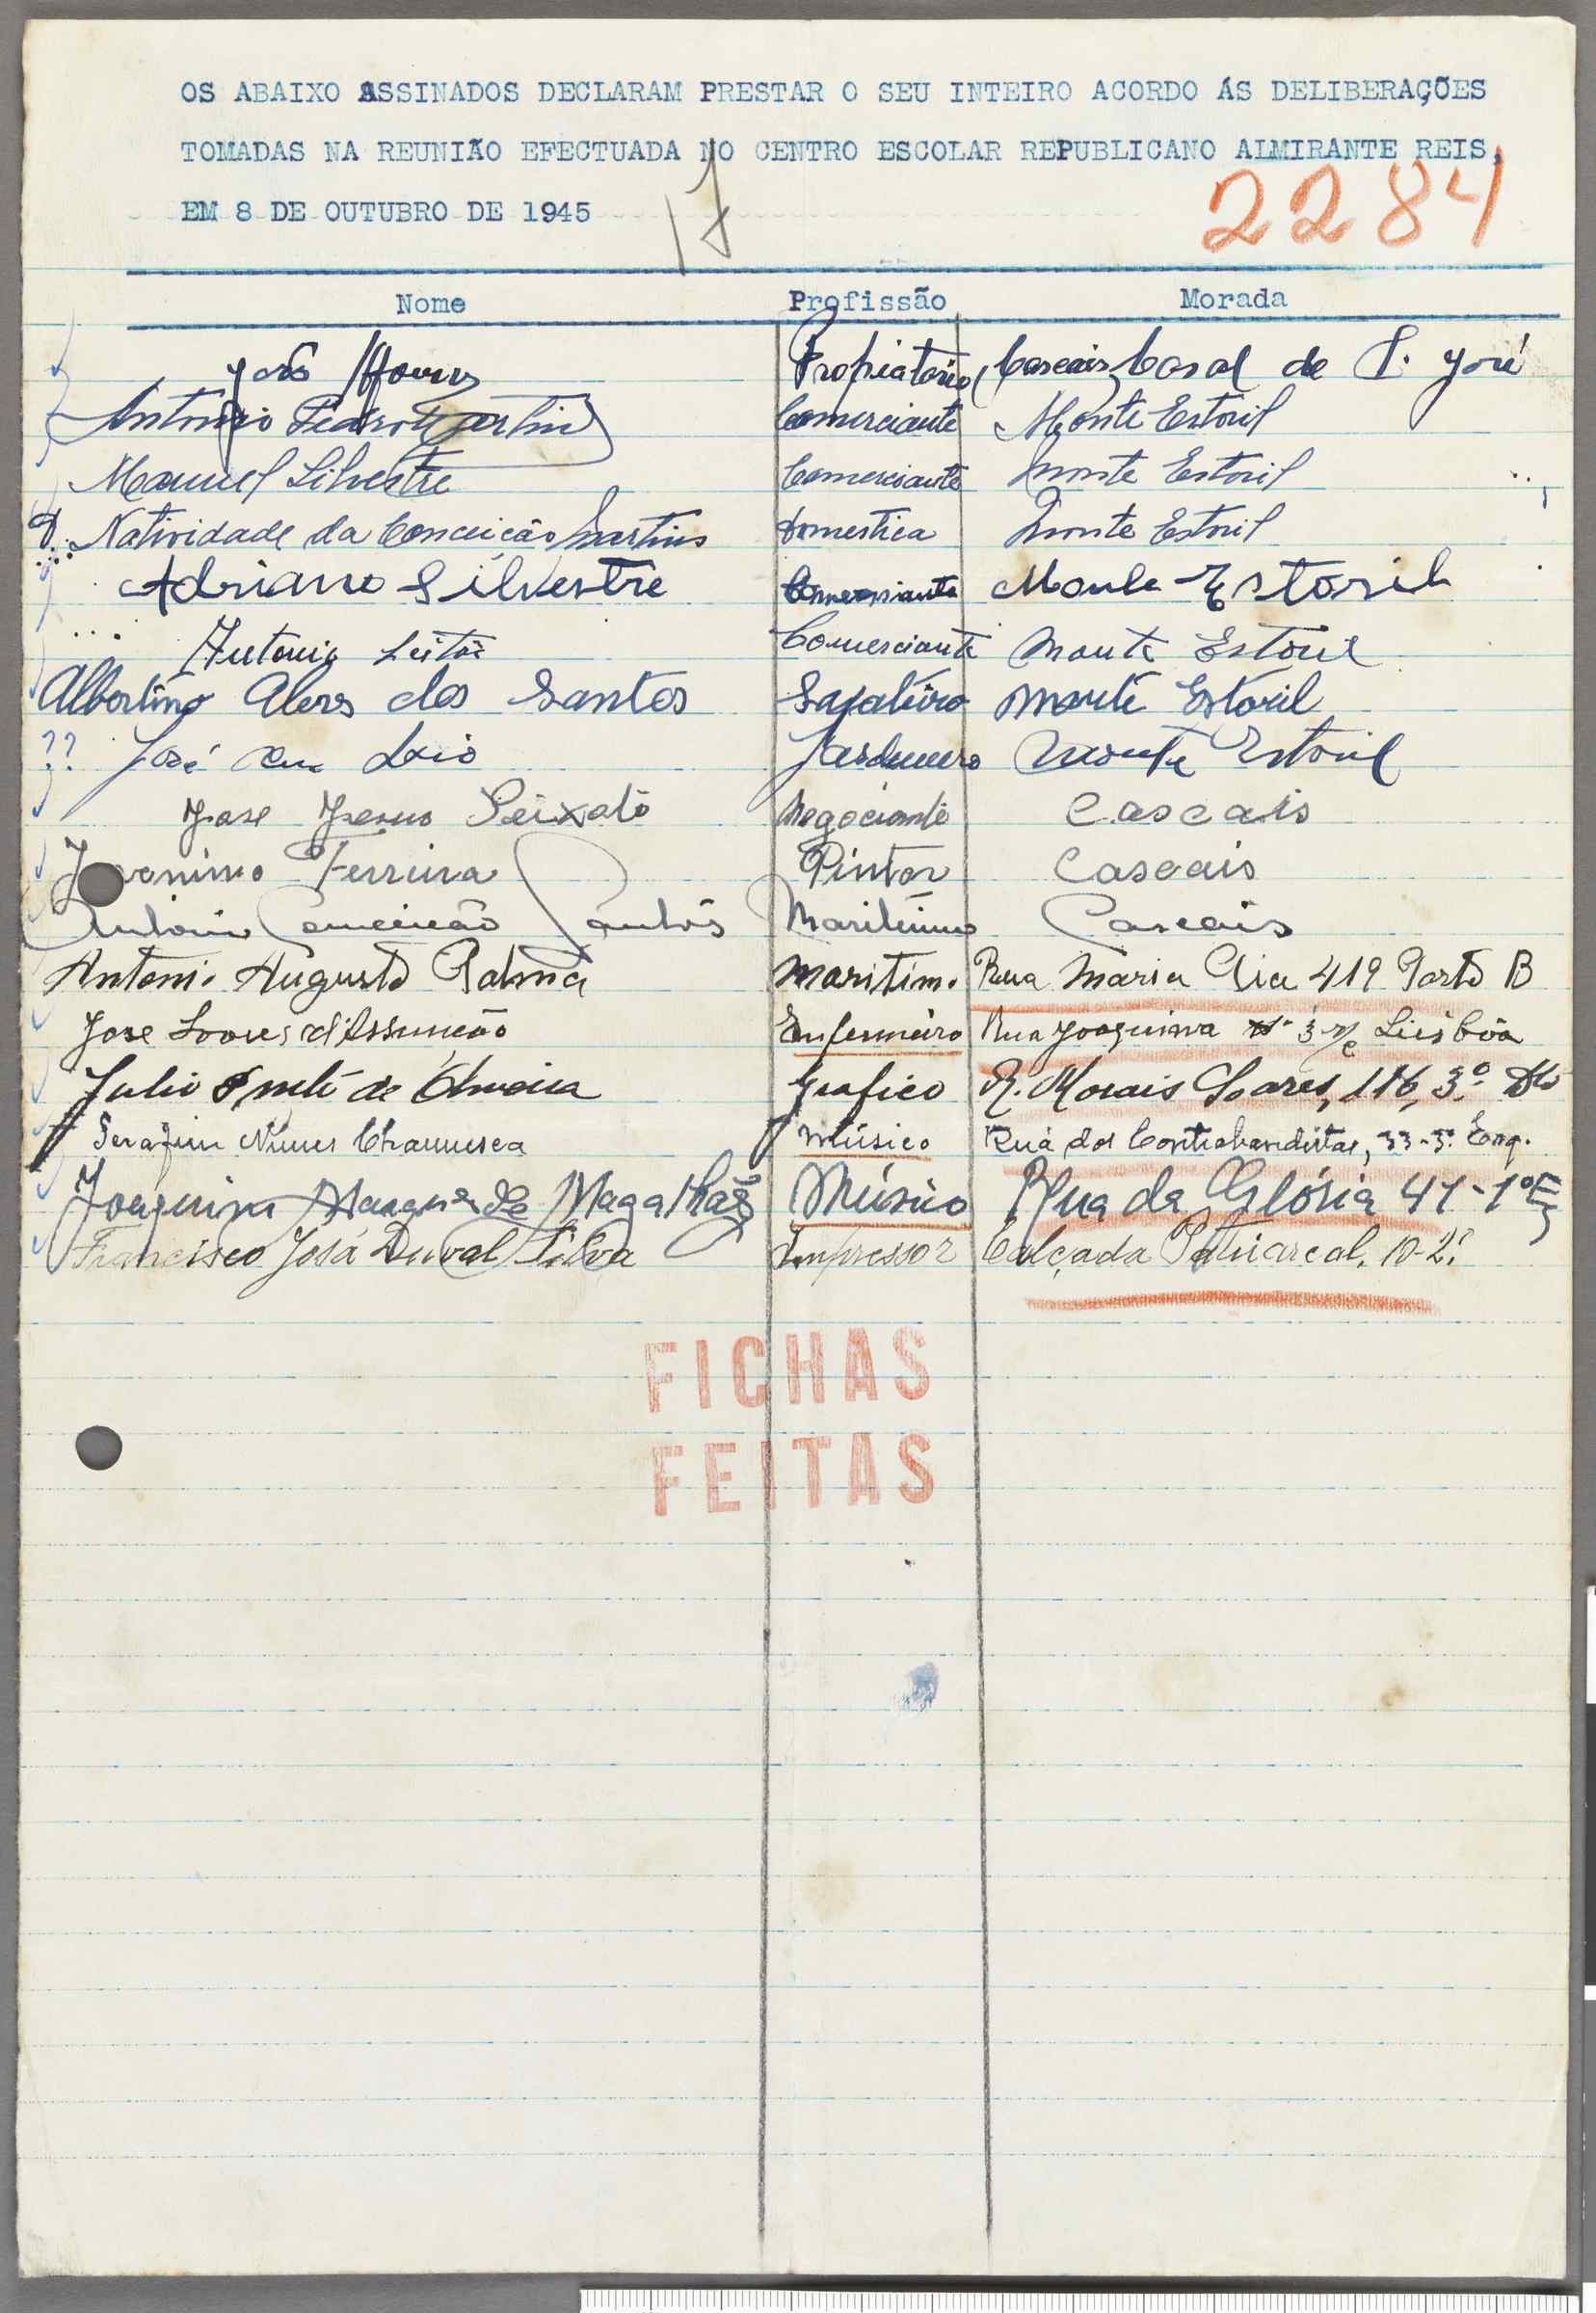 OS ABAIXO ASSINADOS DECLARAM PRESTAR O SEU INTEIRO ACORDO ÁS DELIBERAÇÕES
TOMADAS NA REUNIÃO EFECTUADA NO CENTRO ESCOLAR REPUBLICANO ALMIRANTE REIS,
EM 8 DE OUTUBRO DE 1945
17
2284
Nome Profissão Morada
João Propiatario Cascais, Casal de S. José
Antonio Pedro Martins Comerciante Monte Estoril
Manuel Silvestre Comerciante Monte Estoril
D. Natividade da Conceição Martins Domestica Monte Estoril
Adriano Silvestre Comerciante Monte Estoril
Antonio Leitão Comerciante Monte Estoril
Albertino Alves dos Santos Sapateiro Monte Estoril
?? José Jardineiro Monte Estoril
Jose Jesus Peixoto Negociante Cascais
Jeronimo Ferreira Pintor Cascais
Antonio Conceição Santos Maritimo Cascais
Antonio Augusto Palma Maritimo Rua Maria Pia 419 Porta B
Jose Soares d'Assunção Enfermeiro Rua Joaquina nº 3 r/c Lisbôa
Julio de Oliveira Grafico R. Morais Soares, 116, 3º Dto
Serafim Nunes Chamusca Músico Rua dos Contrabandistas, 33-3º Esq.
Joaquim Marques de Magalhães Músico Rua da Glória 41-1º E
Francisco José Duval Silva Impressor Calçada Patriarcal, 10-2º
FICHAS
FEITAS